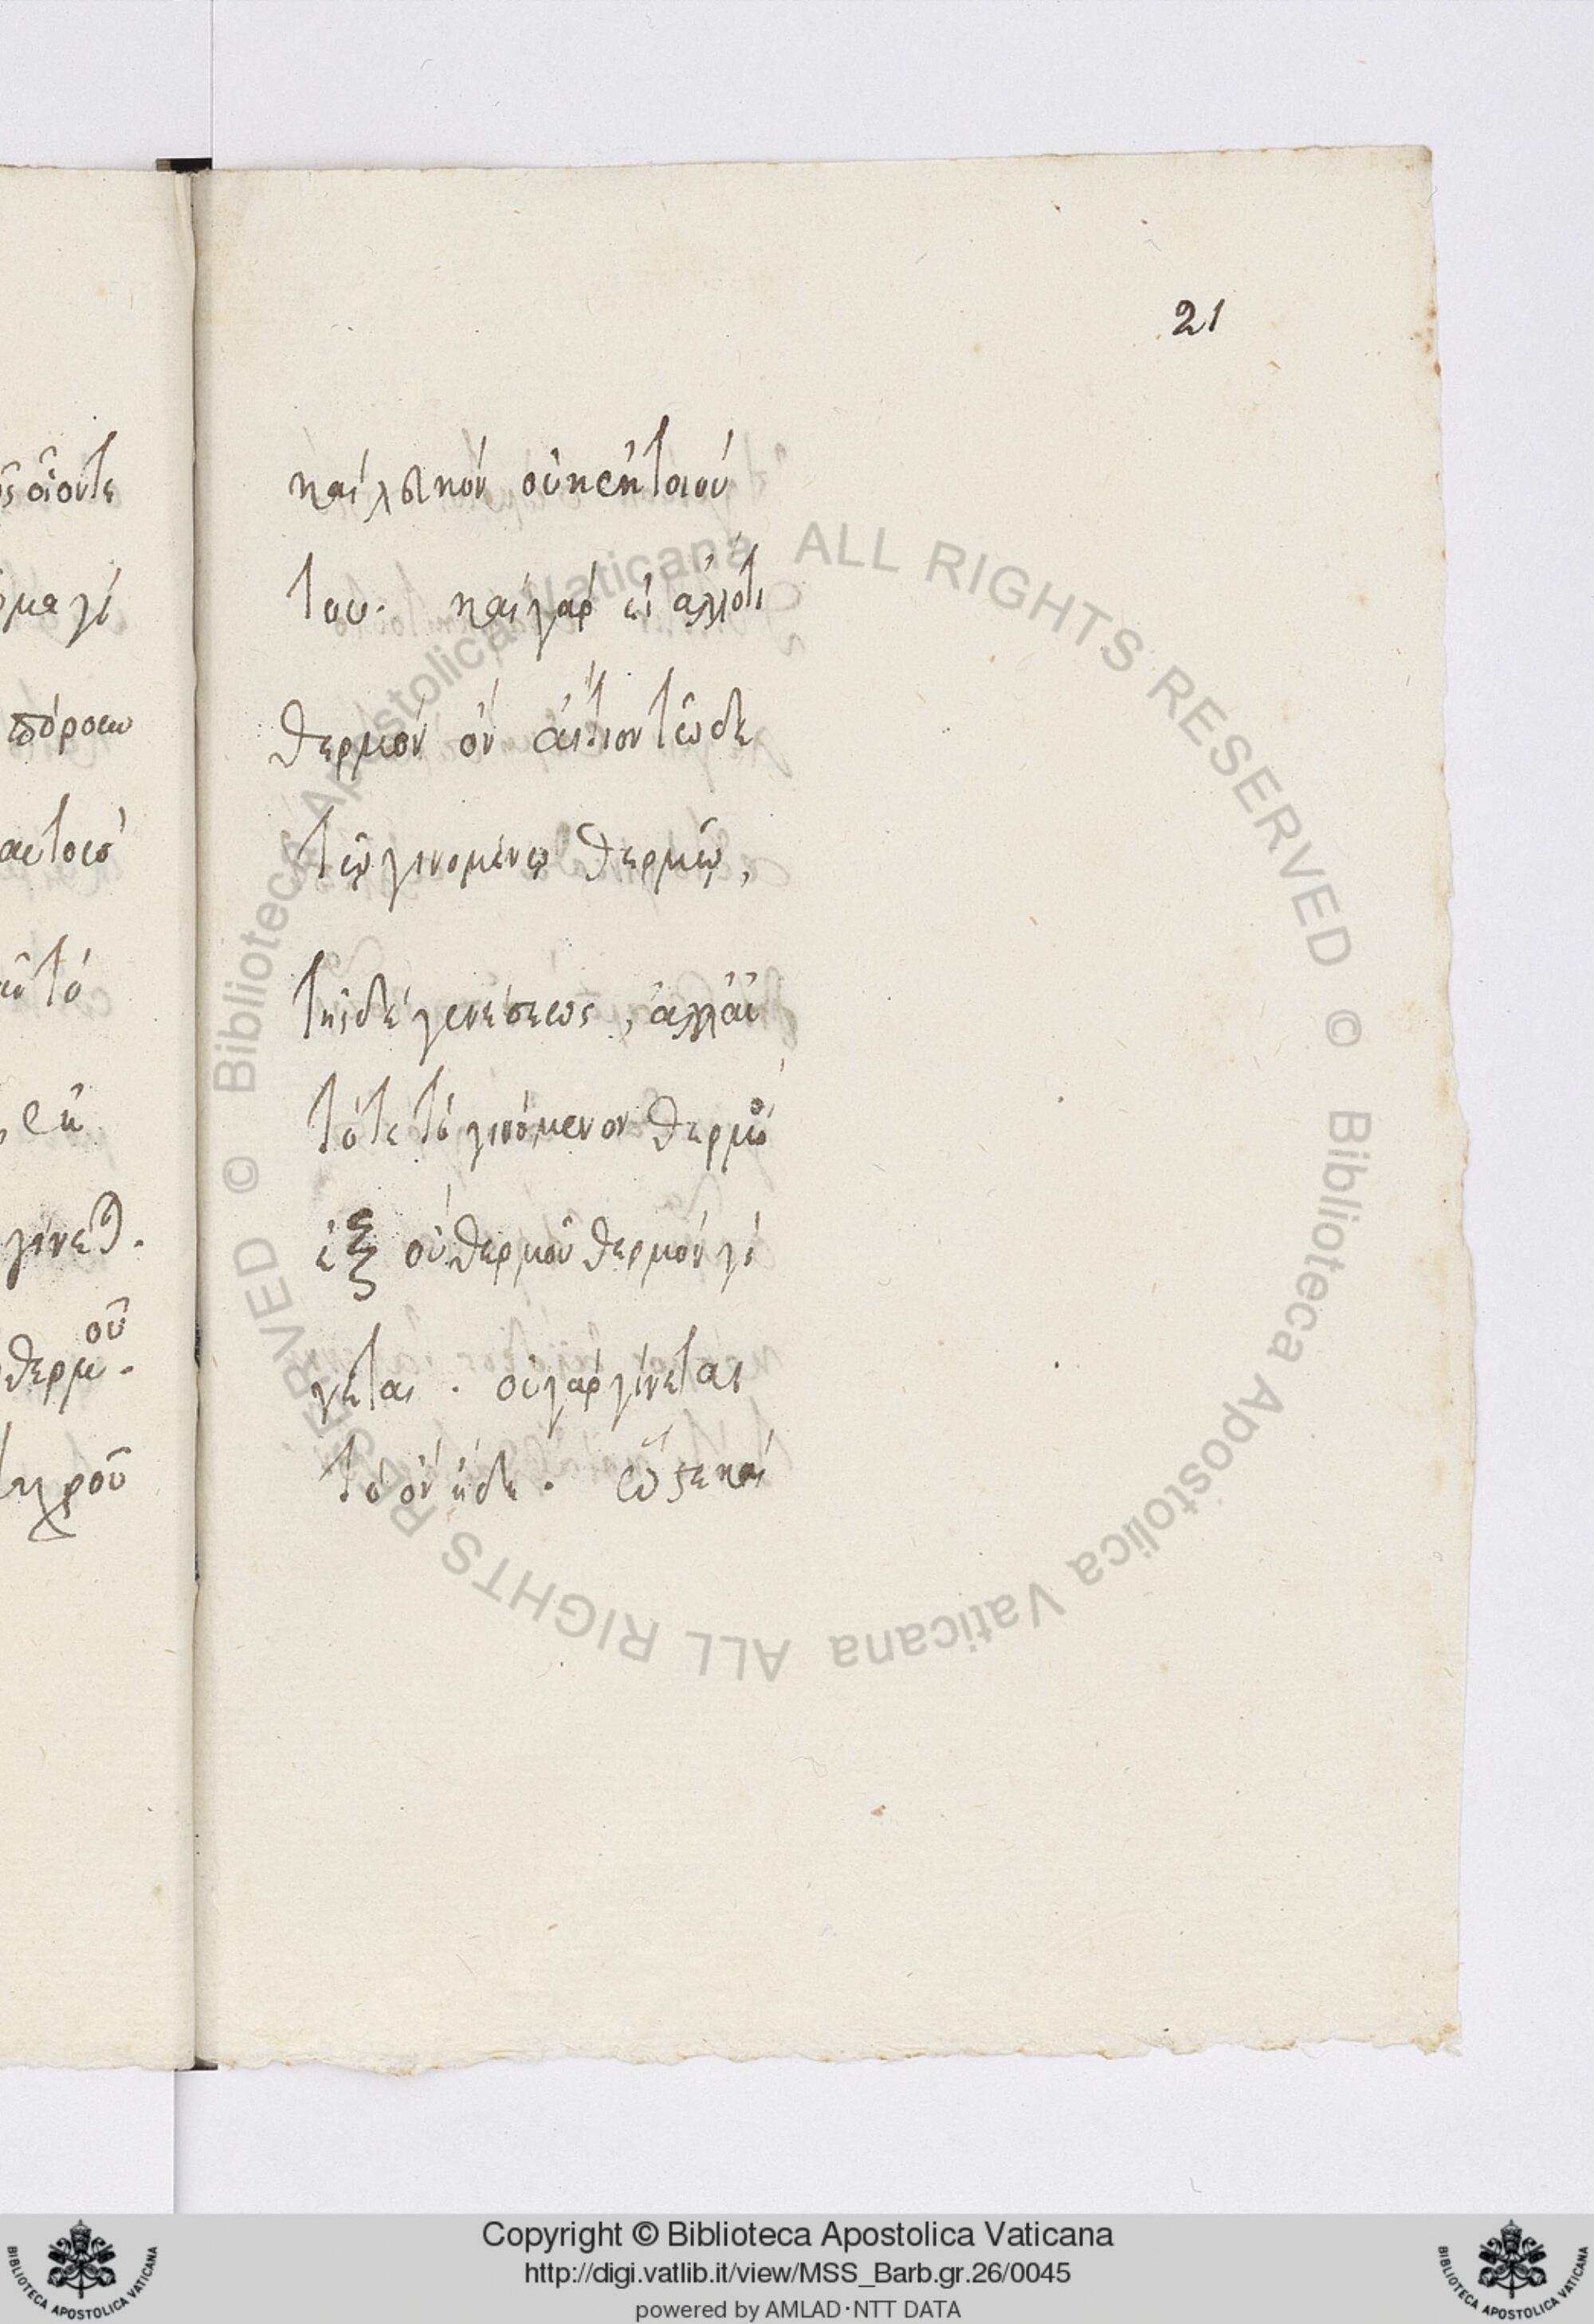 21
ὸς οἷόντε
όμα γί
πόροω
ἀὐτὸ
, ἐκ
γίνε).
θερμοῦ.
χροῦ
καὶ λευκὸν οὐκ ἐκ τοιού
του. καὶ γὰρ εἰ ἄλλό τι
θερμὸν ὂν αἴτιον τῶδε
τῷ γινομένῳ θερμῷ,
τῆς δὲ γενέσεως, ἀλλὰ ἐν
τό τε τὸ γινόμενον θερμὸ
ἐξ οὐ θερμοῦ θερμὸν γί
νεται. οὐ γὰρ γίνεται
τὸ ὂν ἤδε. ὥστε καὶ
© Biblioteca Apostolica Vaticana ALL RIGHTS RESERVED © Biblioteca Apostolica Vaticana ALL RIGHTS RESERVED
Copyright © Biblioteca Apostolica Vaticana
http://digi.vatlib.it/view/MSS_Barb.gr.26/0045
powered by AMLAD·NTT DATA
BIBLIOTECA APOSTOLICA VATICANA
BIBLIOTECA APOSTOLICA VATICANA